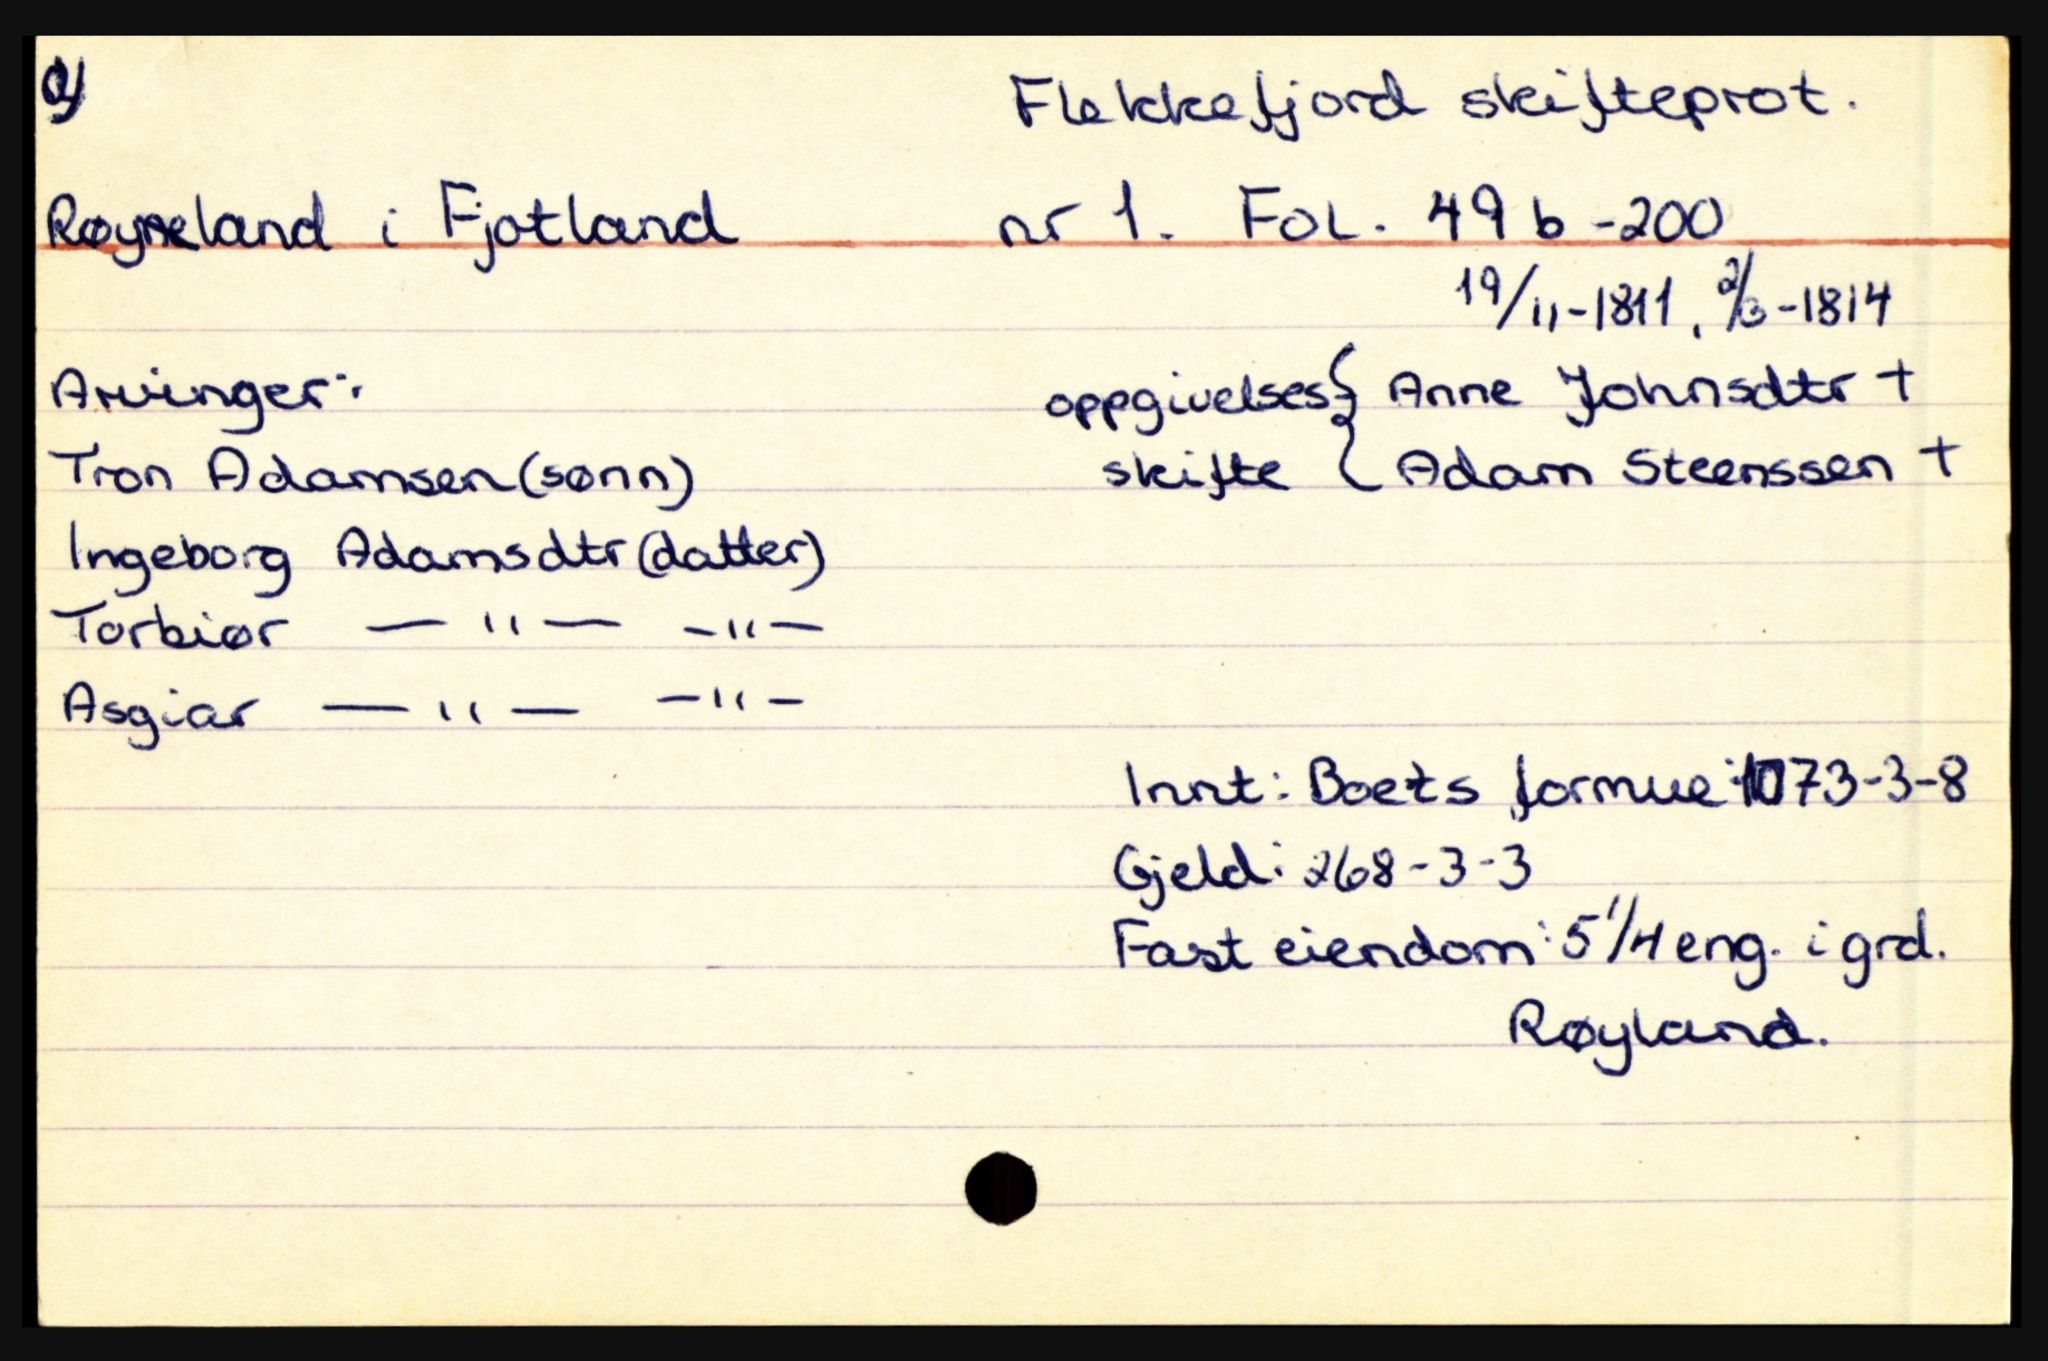 Flekkefjord skifteprot.
Røyneland i Fjotland nr 1. Fol. 49 b - 200
19/11-1811, 2/3-1814
Arvinger: oppgivelses { Anne Johnsdtr +
Tron Adamsen (sønn) skifte { Adam Steenssen +
Ingeborg Adamsdtr (datter)
Torbiør — " — — " —
Asgiar — " — — " —
Innt: Boets formue: 1073-3-8
Gjeld: 268-3-3
Fast eiendom: 5 1/4 eng. i grd.
Røyland.